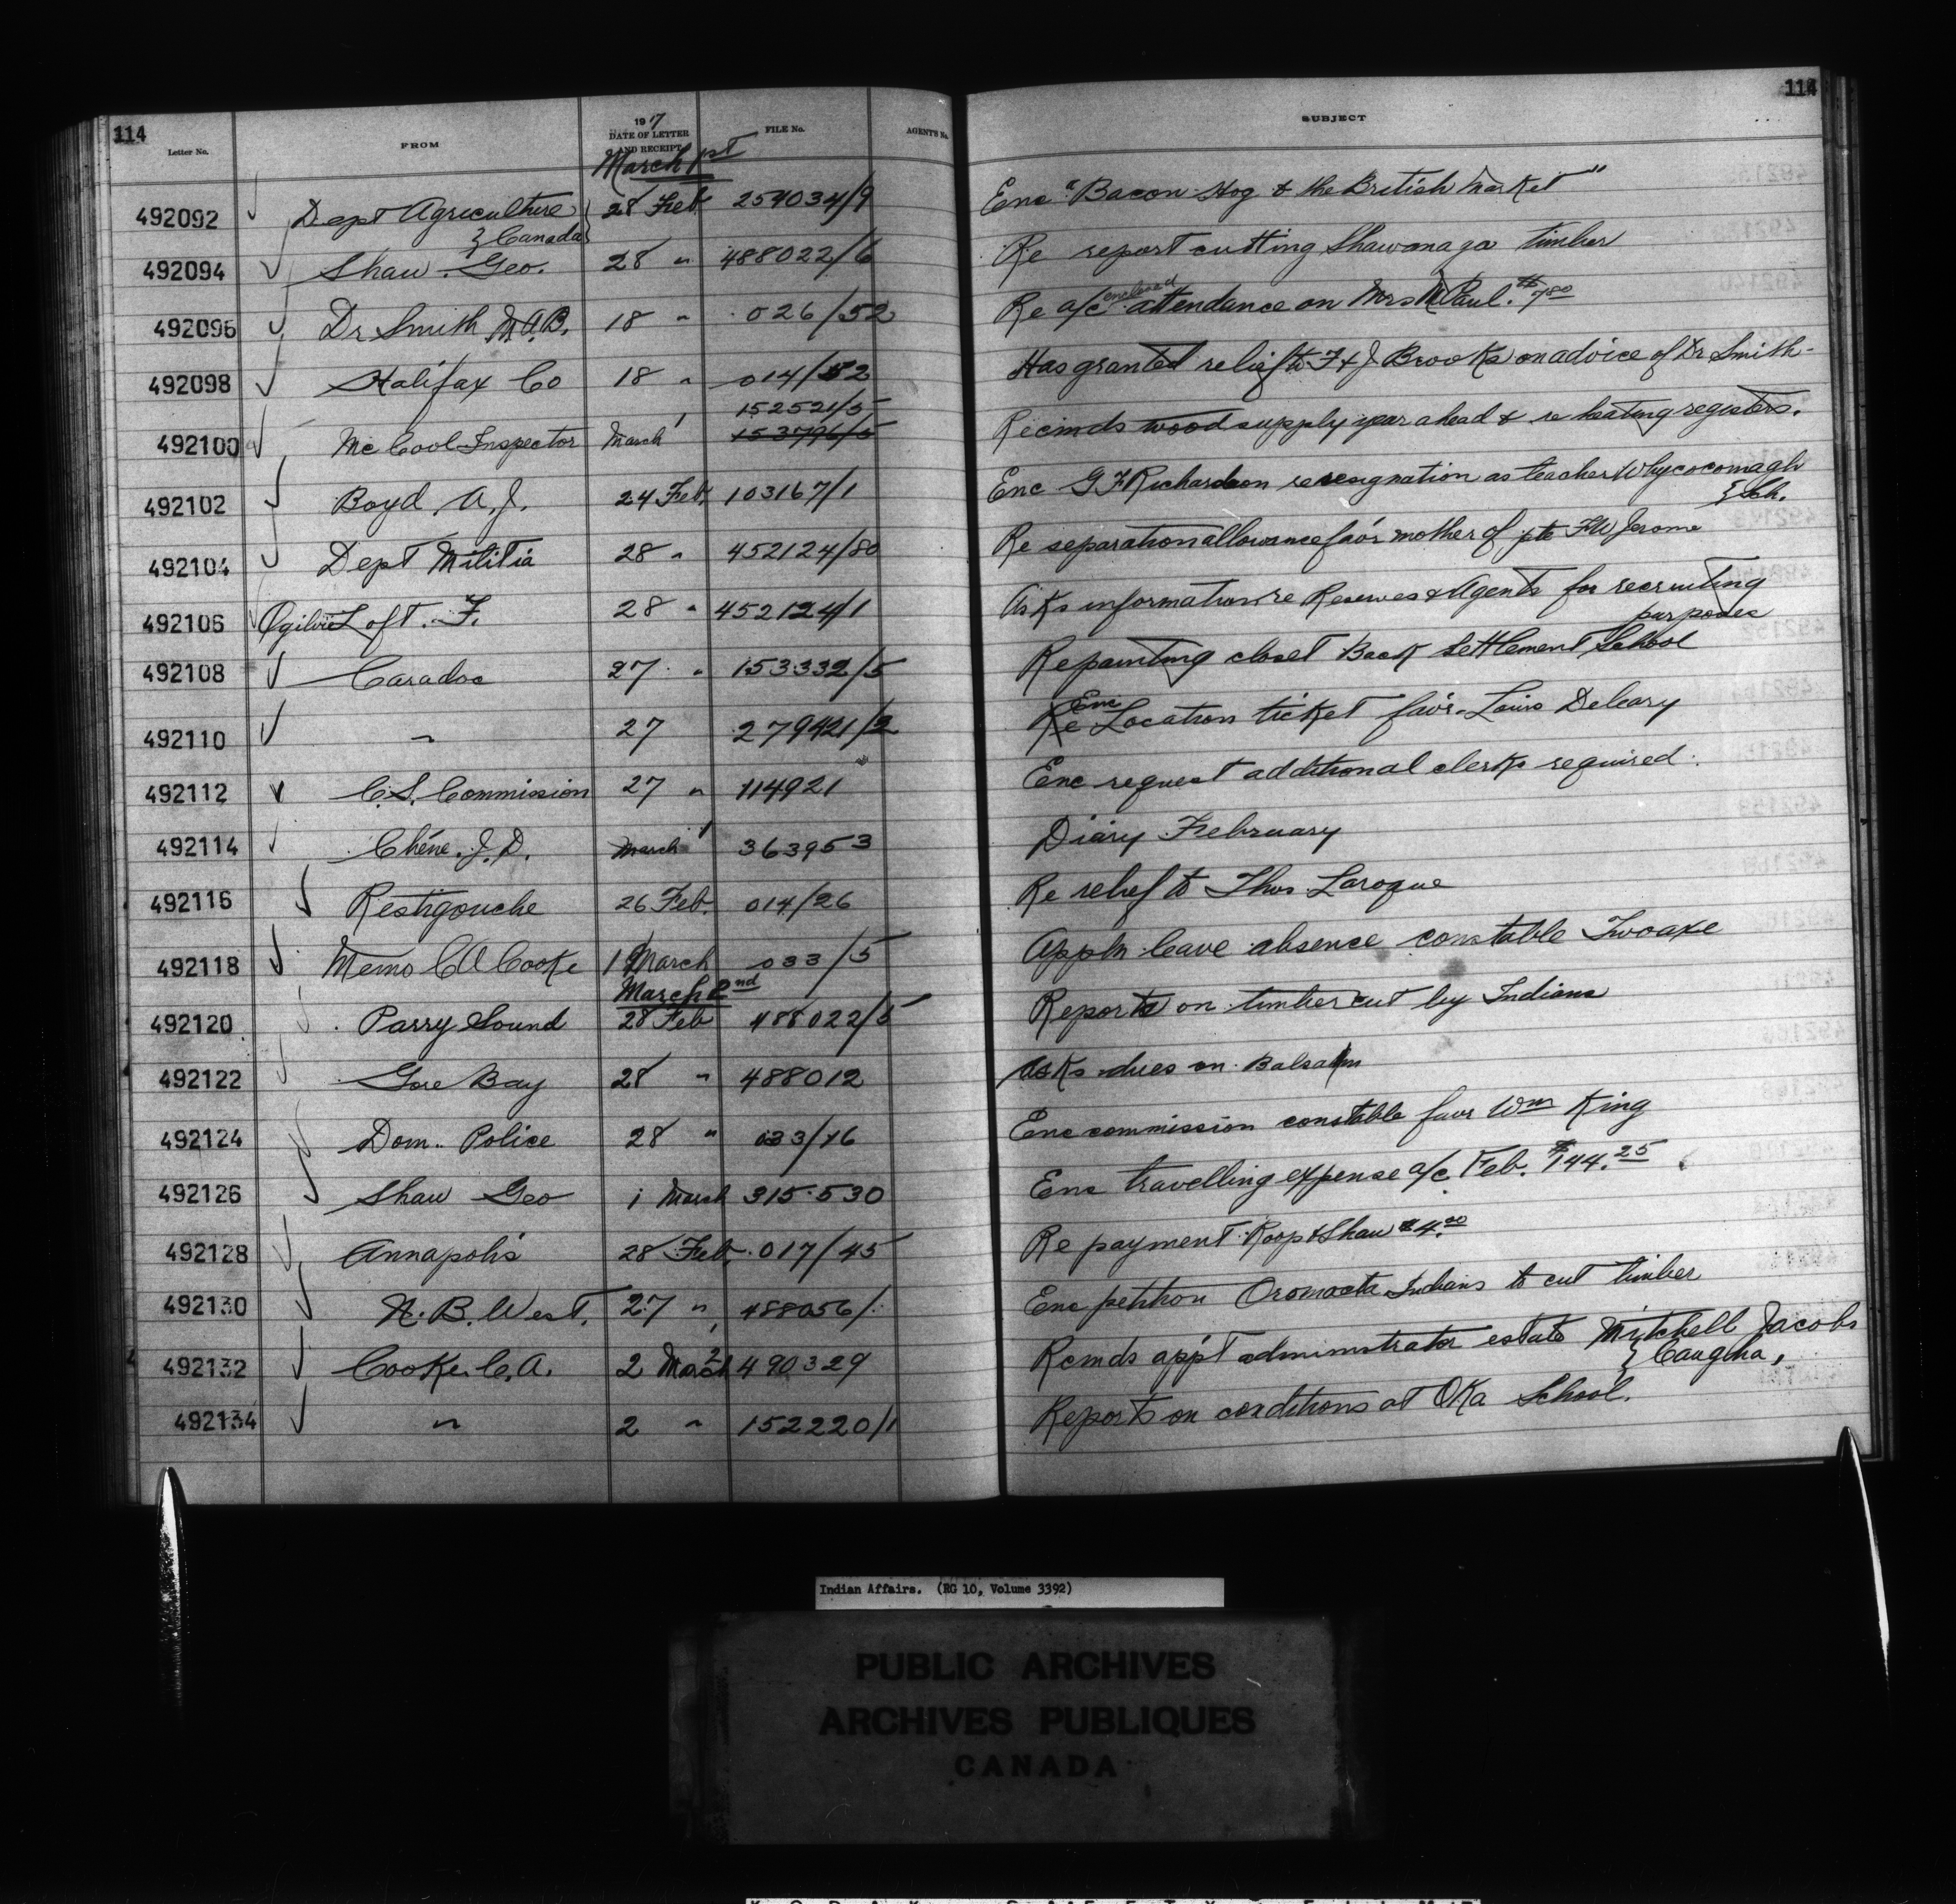 114
114
Letter No. FROM 1917 DATE OF LETTER AND RECEIPT FILE No. AGENT'S No. SUBJECT
March 1st
492092 Dept Agriculture 28 Feb 254034/9 Enc "Bacon Hog & the British Market"
} Canada}
492094 Shaw. Geo. 28 " 488022/6 Re report cutting Shawanaga timber
492096 Dr Smith M.A.B. 18 " 026/52 Re a/c enclosed attendance on Mrs N Paul. $7.80
492098 Halifax Co 18 " 014/52 Has granted relief to F & J Brooks on advice of Dr Smith-
152521/5
492100 McCool Inspector March 1 153796/5 Recmds wood supply year ahead & re heating registers.
492102 Boyd. A.J. 24 Feb. 103167/1 Enc G F Richardson re resignation as teacher Whycocomagh
} Sch.
492104 Dept Militia 28 " 452124/80 Re separation allowance fav'r mother of pte F W Jerome
492106 Ogilvie Loft. F. 28 " 452124/1 Asks information re Reserves & Agents for recruiting
purposes
492108 Caradoc 27 " 153332/5 Re painting closet Back Settlement School
492110 " 27 279421/2 Re Enc Location ticket fav'r Louis Deleary
492112 C.S. Commission 27 " 114921 Enc request additional clerks required.
492114 Chêne. J.D. March 1 363953 Diary February
492116 Restigouche 26 Feb. 014/26 Re relief to Thos Laroque
492118 Memo C A Cooke 1 March 033/5 Appln leave absence constable Twoaxe
March 2nd
492120 Parry Sound 28 Feb 488022/5 Reports on timber cut by Indians
492122 Gore Bay 28 " 488012 Asks dues on Balsam
492124 Dom. Police 28 " 033/16 Enc commission constable favr Wm King
492126 Shaw Geo 1 March 315530 Enc travelling expense a/c Feb. $144.25
492128 Annapolis 28 Feb. 017/45 Re payment Roop & Shaw $4.00
492130 N.B. West. 27 " 488056/ Enc petition Oromocto Indians to cut timber
492132 Cooke. C.A. 2 March 490329 Rcmds app't administrator estate Mitchell Jacobs
} Caugha,
492134 " 2 " 152220/1 Reports on conditions at Oka School.
Indian Affairs. (RG 10, Volume 3392)
PUBLIC ARCHIVES
ARCHIVES PUBLIQUES
CANADA